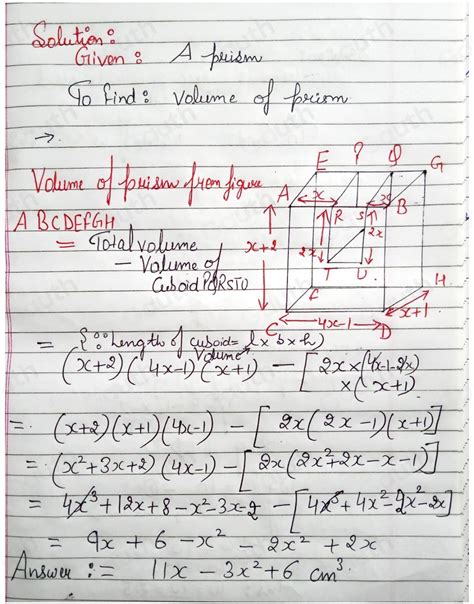 Solution:
Given: A prism
To find: Volume of prism
→.
Volume of prism from figure
ABCDEFGH
= Total volume
- Volume of
Cuboid PQRSTU
E P Q G
A x x B
R S
x+2 2x 2x
T U
F H
C 4x-1 D x+1
= {∵ Length of cuboid = l x b x h)
Volume
(x+2)(4x-1)(x+1) - [2x x (4x-1-2x)
x(x+1)
= (x+2)(x+1)(4x-1) - [2x(2x-1)(x+1)]
= (x²+3x+2)(4x-1) - [2x(2x²+2x-x-1)]
= 4x³+12x+8-x²-3x-2 - [4x³+4x²-2x²-2x]
= 9x+6-x²-2x²+2x
Answer := 11x-3x²+6 cm³.